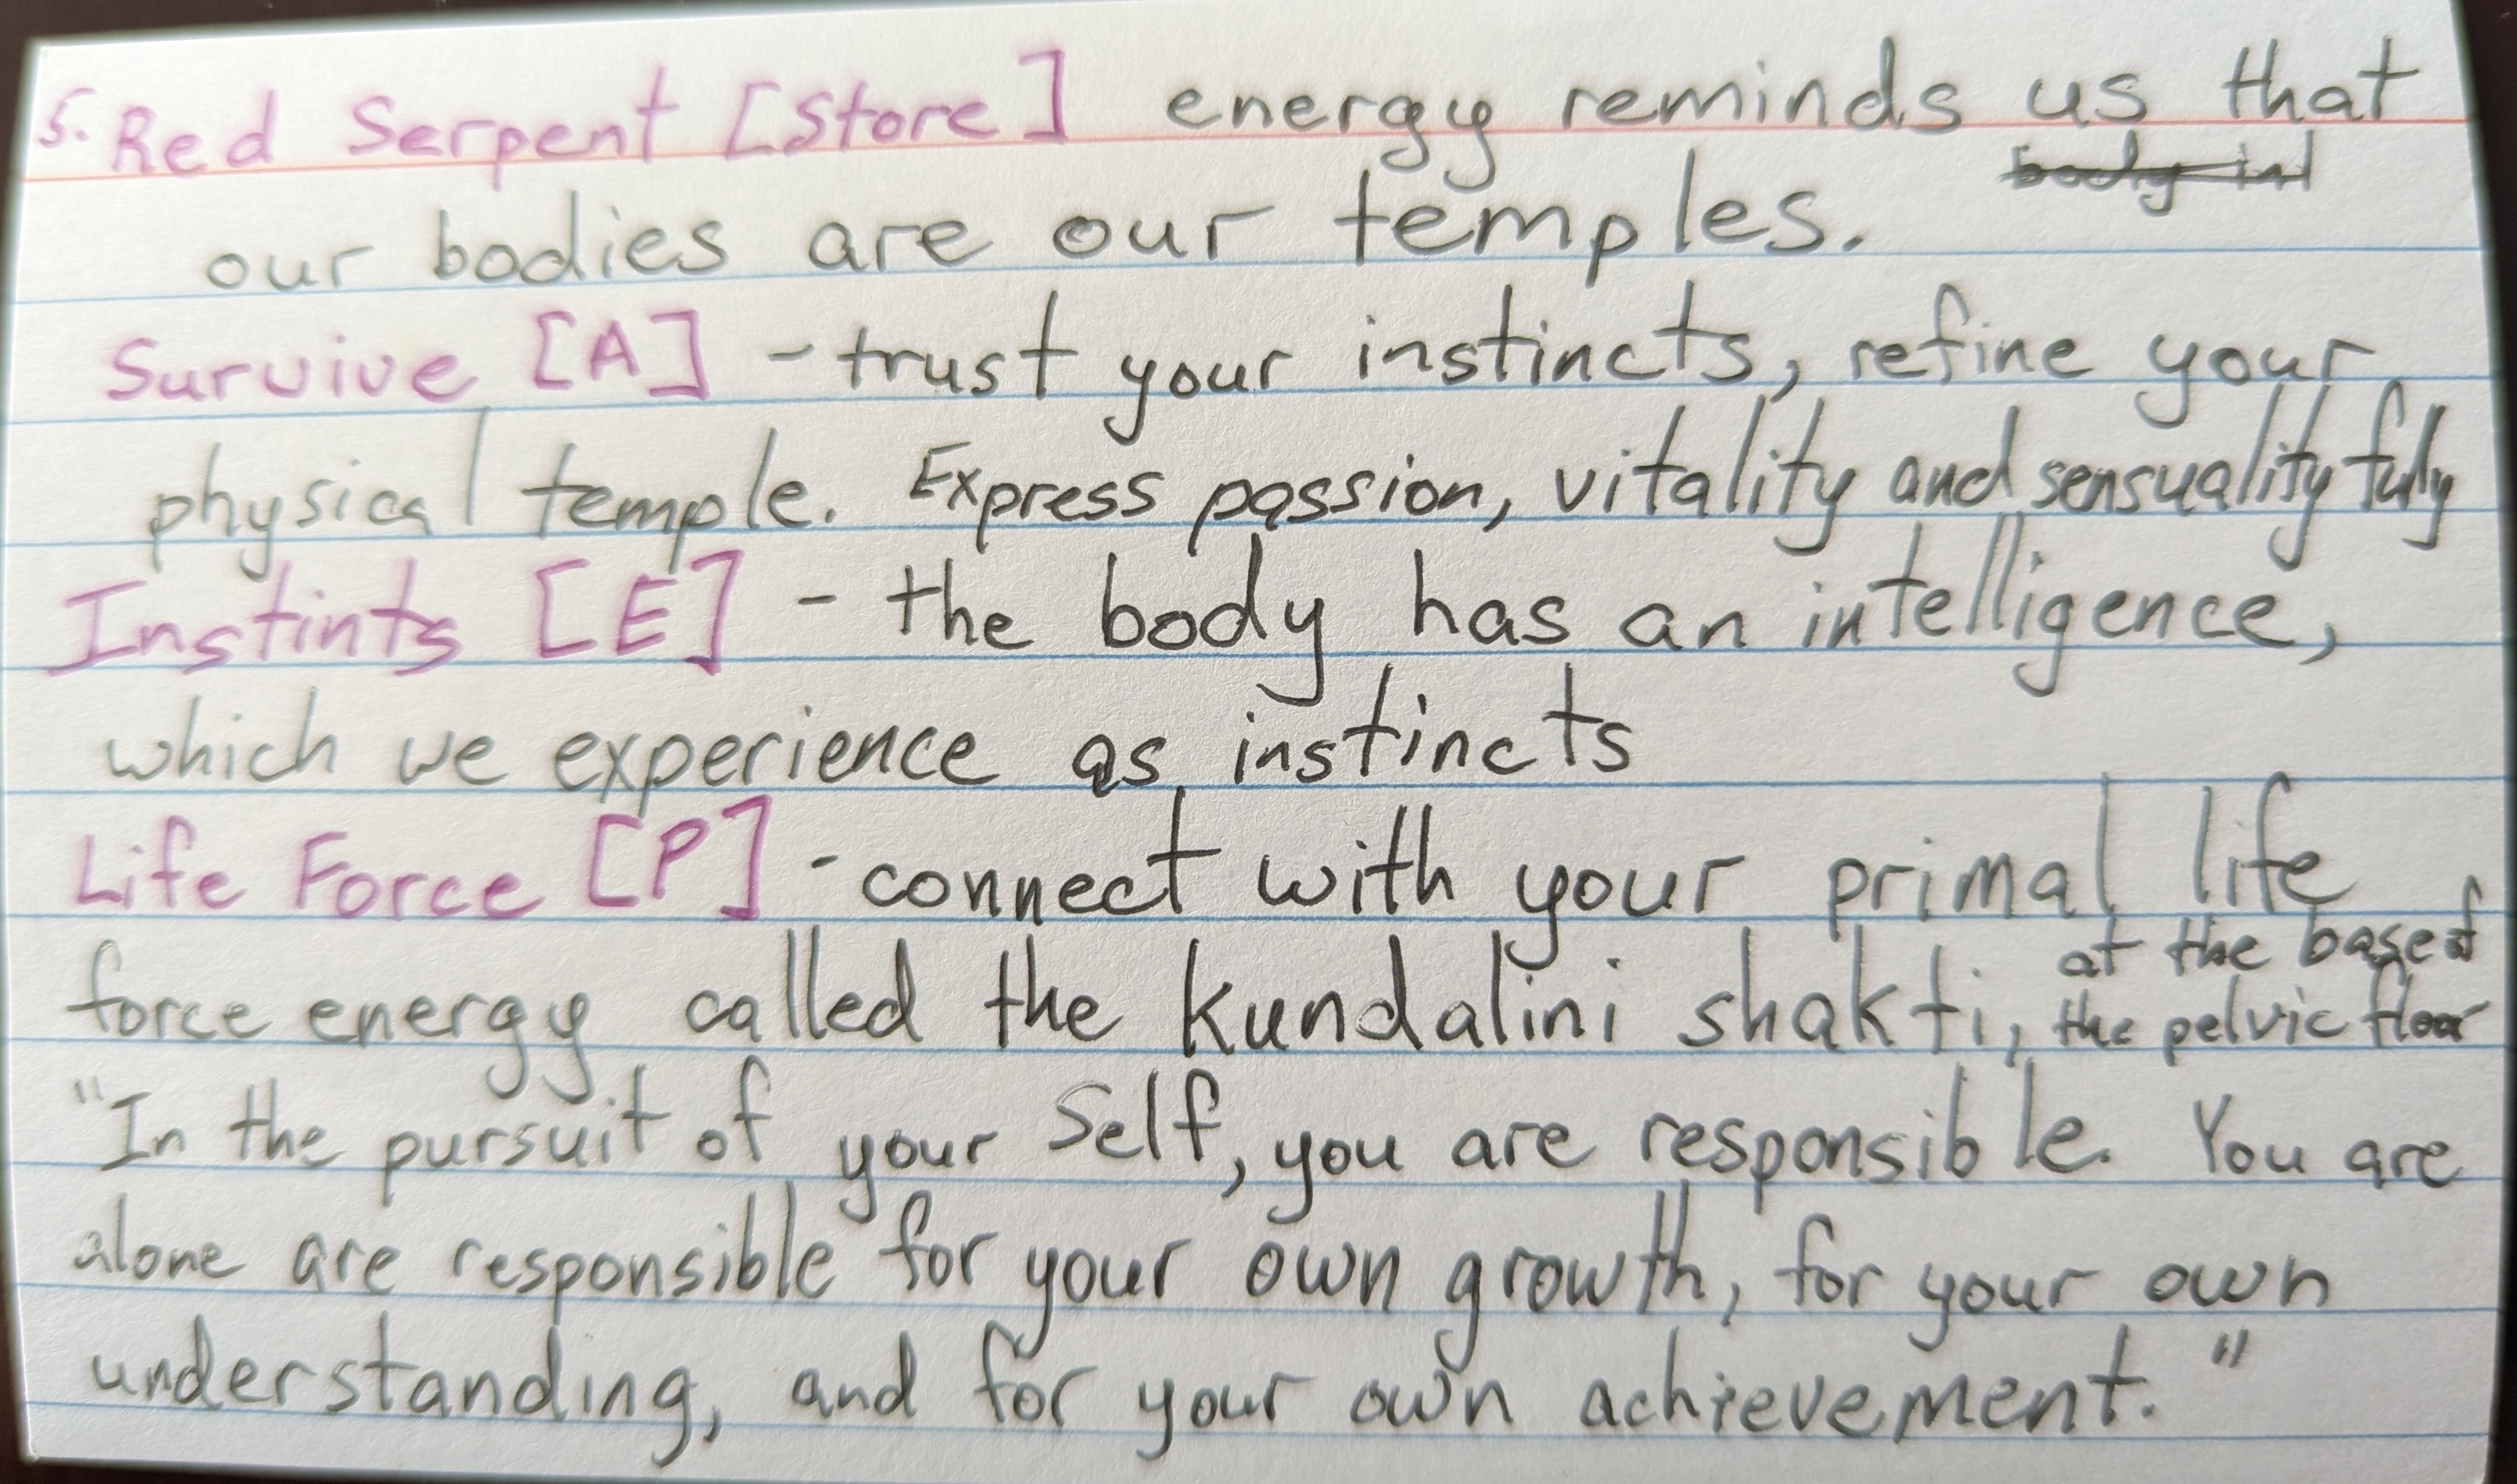 5. Red Serpent [Store] energy reminds us that
body int
our bodies are our temples.
Survive [A] - trust your instincts, refine your
physical temple. Express passion, vitality and sensuality fuly
Instints [E] - the body has an intelligence,
which we experience as instincts
Life Force [P] - connect with your primal life
force energy called the kundalini shakti, at the base of
the pelvic floor
"In the pursuit of your Self, you are responsible. You are
alone are responsible for your own growth, for your own
understanding, and for your own achievement."